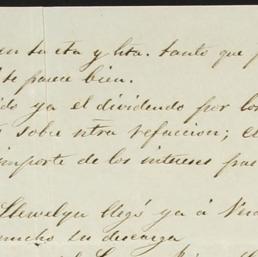 en su cta y hta. tanto que
se parece bien.
ido ya el dividendo por los
sobre ntra refaccion; el
importe de los intereses
Llewelyn llegó ya á
mucho su descarga